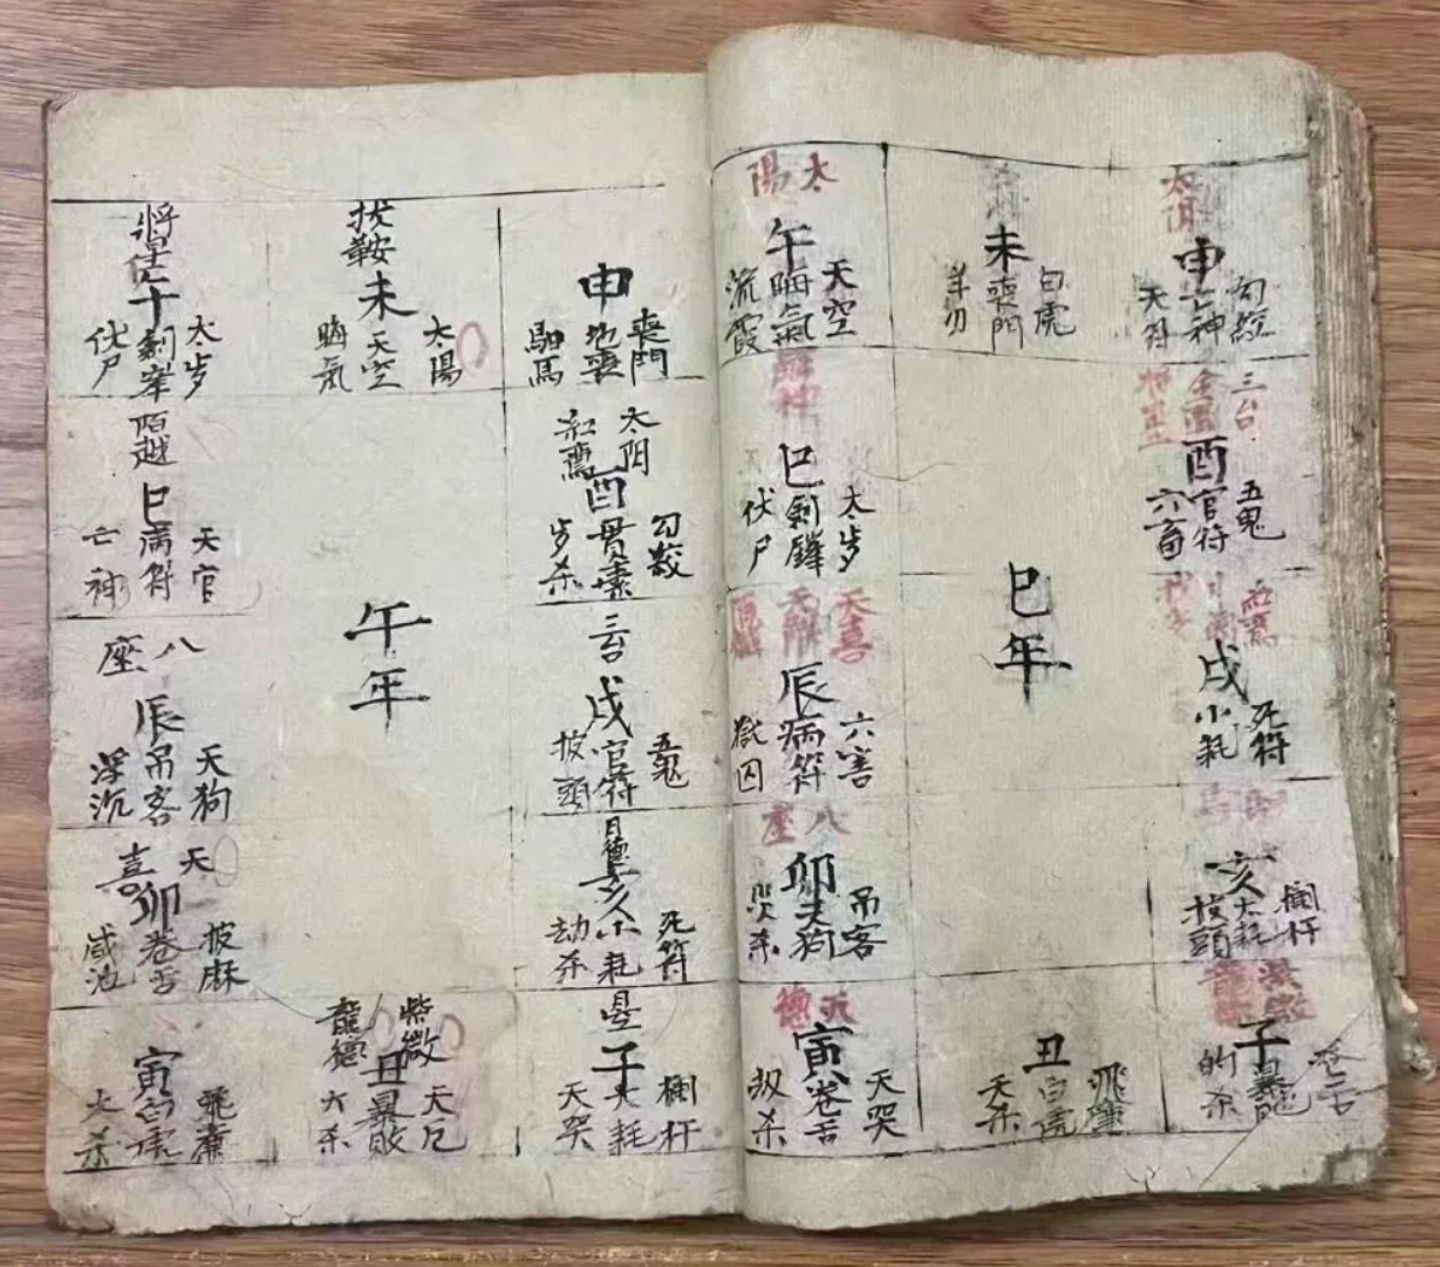 太陽
午
天空
晦氣
流霞
未
白虎
喪門
羊刃
申
巳
太岁
劍鋒
伏尸
三台
酉
五鬼
官符
六畜
巳年
天喜
辰
六害
病符
獄囚
紅鸞
戌
死符
小耗
八座
卯
吊客
天狗
亥
欄杆
大耗
披頭
天德
寅
天哭
卷舌
劫杀
丑
飛廉
白虎
天杀
子
卷舌
暴敗
的杀
將星
太岁
劍峯
伏尸
扳鞍
未
太陽
天空
晦氣
申
喪門
地喪
馹馬
陌越
巳
天官
病符
亡神
太阳
紅鸞
酉
勾絞
貫索
岁杀
午年
八座
辰
天狗
吊客
浮沉
三台
戌
五鬼
官符
披頭
天喜
卯
披麻
卷舌
咸池
月德
亥
死符
小耗
劫杀
寅
飛廉
白虎
大杀
紫微
龍德
丑
天厄
暴敗
六杀
子
欄杆
大耗
天哭